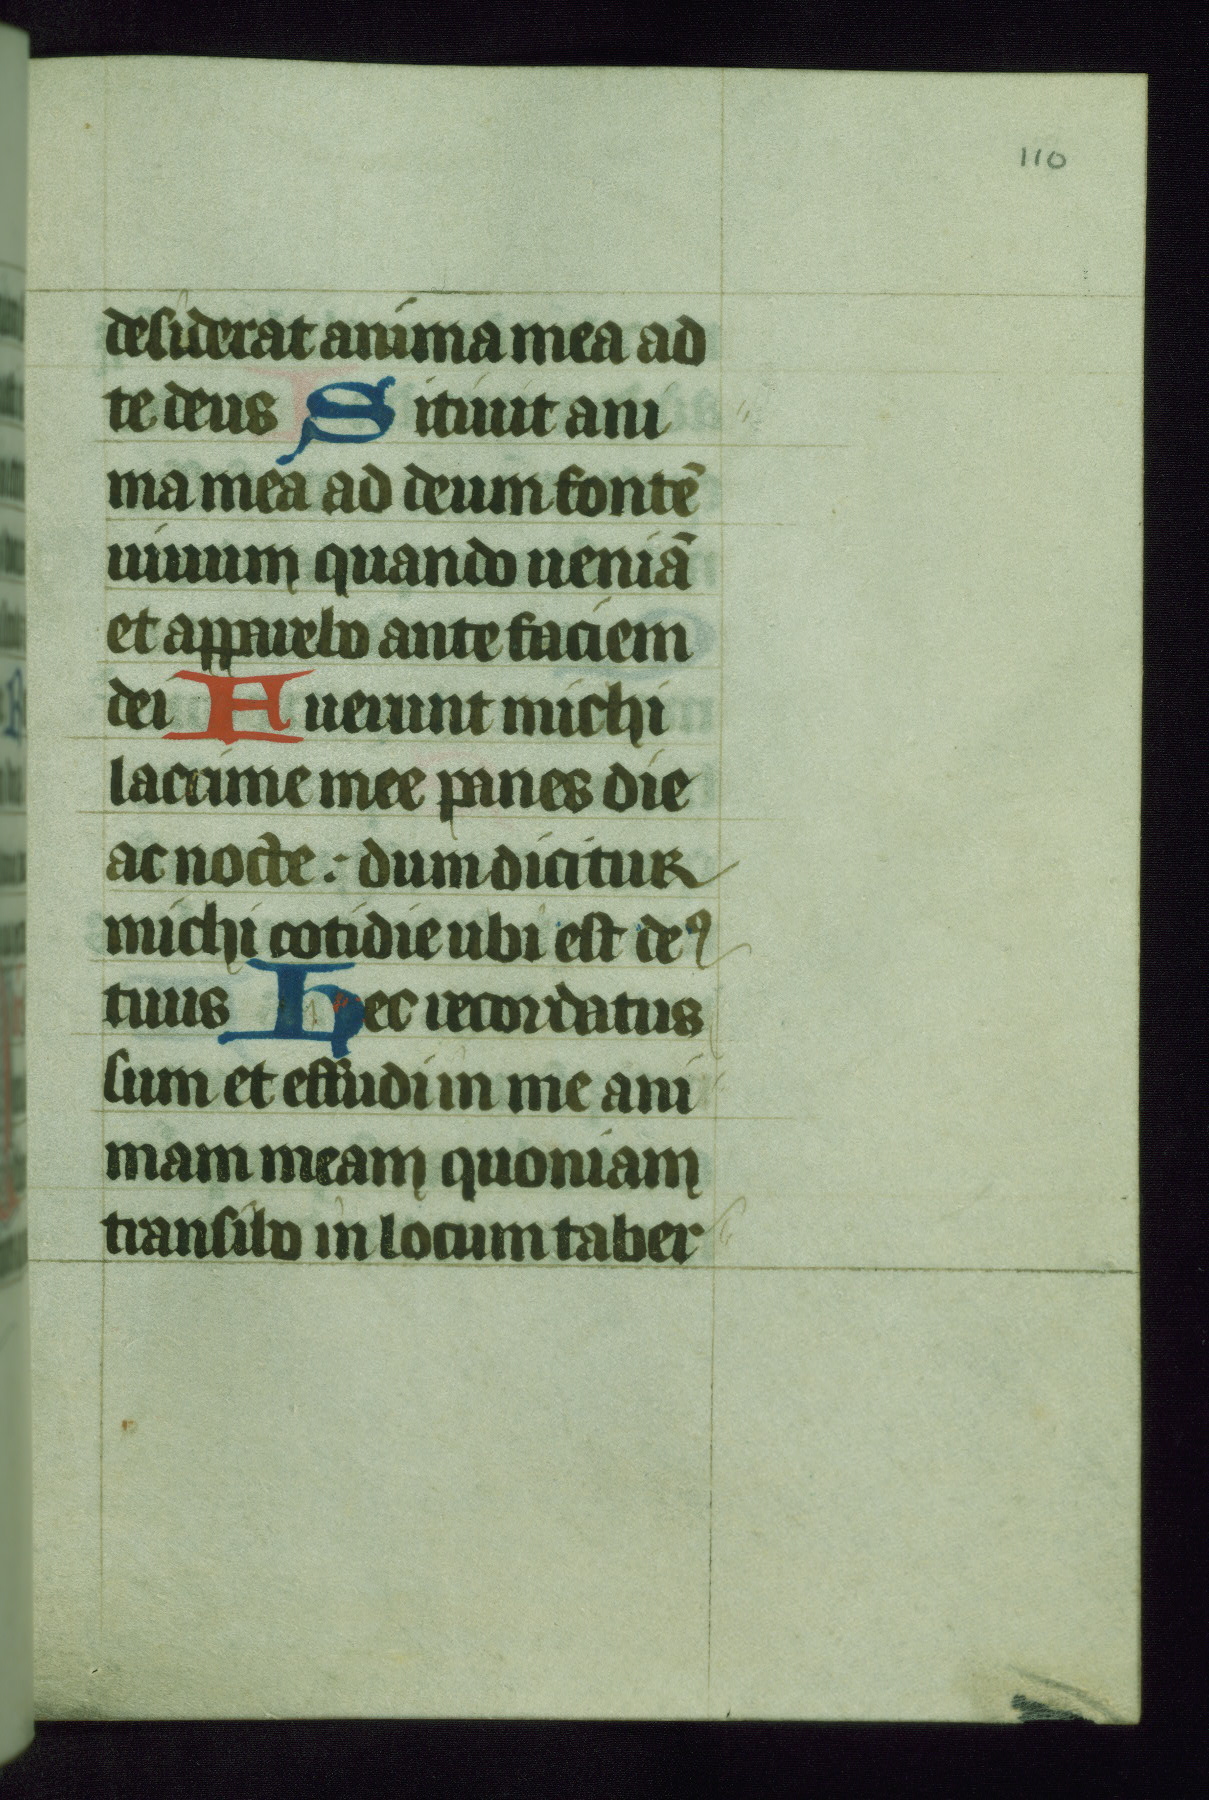 110
desiderat anima mea ad
te deus Sitiuit ani
ma mea ad deum fontē
uiuum quando ueniā
et apparebo ante faciem
dei Fuerunt michi
lacrime mee panes die
ac nocte : dum dicitur
michi cotidie ubi est deꝰ
tuus Hec recordatus
sum et effudi in me ani
mam meam quoniam
transibo in locum taber